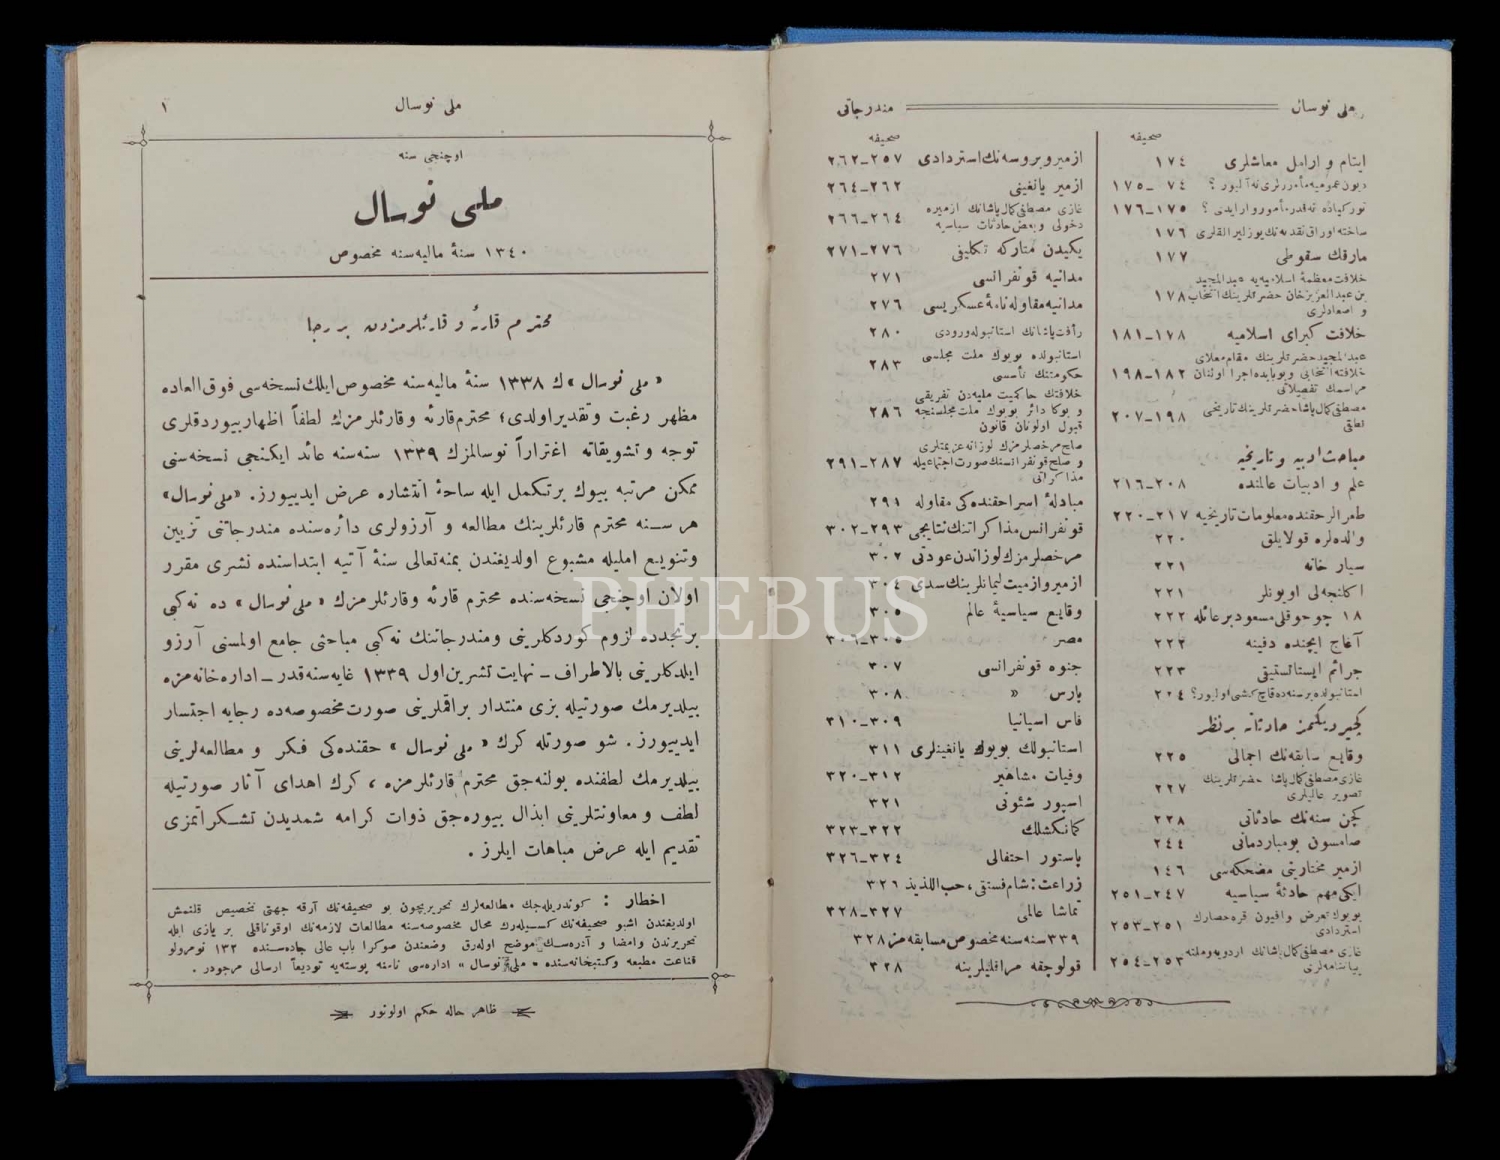 ملی نوسال
مندرجاتی
صحیفه
ایتام و ارامل معاشلری ١٧٤
دیون عمومیه مأمورلری نه آلیور ؟ ٧٤ـ١٧٥
تورکیاده نه قدر مأمور وار ایدی ؟ ١٧٥ـ١٧٦
ساخته اوراق نقدیه نك یوزلیرالقلری ١٧٦
مارقك سقوطی ١٧٧
خلافت معظمهٔ اسلامیه یه عبدالمجید
بن عبدالعزیز خان حضرتلرینك انتخاب ١٧٨
و اصعادلری
خلافت کبرای اسلامیه ١٧٨ـ١٨١
عبدالمجید حضرتلرینك مقام معلای
خلافته انتخابی و بوبابده اجرا اولنان ١٨٢ـ١٩٨
مراسمك تفصیلاتی
مصطفی کمال پاشا حضرتلرینك تاریخی ١٩٨ـ٢٠٧
نطقی
مباحث ادبیه و تاریخیه
علم و ادبیات عالمنده ٢٠٨ـ٢١٦
طمر الر حقنده معلومات تاریخیه ٢١٧ـ٢٢٠
والده لره قولایلق ٢٢٠
سیار خانه ٢٢١
اکلنجه لی اویونلر ٢٢١
١٨ چوجوقلی مسعود بر عائله ٢٢٢
آغاج ایچنده دفینه ٢٢٢
جرائم ایستاتستیقی ٢٢٣
استانبولده بر سنه ده قاچ کشی اولیور؟ ٢٢٤
کچیردیکمز حادثاته بر نظر
وقایع سابقه نك اجمالی ٢٢٥
غازی مصطفی کمال پاشا حضرتلرینك ٢٢٧
تصویر عالیلری
کچن سنه نك حادثاتی ٢٢٨
صامسون بومباردمانی ٢٤٤
ازمیر مختاریتی مضحکه سی ١٤٦
ایکی مهم حادثهٔ سیاسیه ٢٤٧ـ٢٥١
بویوك تعرض و افیون قره حصارك ٢٥١ـ٢٥٣
استردادی
غازی مصطفی کمال پاشانك اردویه و ملته ٢٥٣ـ٢٥٤
بیاننامه لری
صحیفه
ازمیر و بروسه نك استردادی ٢٥٧ـ٢٦٢
ازمیر یانغینی ٢٦٢ـ٢٦٤
غازی مصطفی کمال پاشانك ازمیره ٢٦٤ـ٢٦٦
دخولی و بعض حادثات سیاسیه
یکیدن متارکه تکلیفی ٢٧٦ـ٢٧١
مدانیه قونفرانسی ٢٧١
مدانیه مقاوله نامهٔ عسکریسی ٢٧٦
رأفت پاشانك استانبوله ورودی ٢٨٠
استانبولده بویوك ملت مجلسی ٢٨٣
حکومتنك تأسسی
خلافتك حاکمیت ملیه دن تفریقی
و بوکا دائر بویوك ملت مجلسنجه ٢٨٦
قبول اولونان قانون
صلح مرخصلرمزك لوزانه عزیمتلری
و صلح قونفرانسنك صورت اجتماعیله ٢٨٧ـ٢٩١
مذاکراتی
مبادلهٔ اسرا حقنده کی مقاوله ٢٩١
قونفرانس مذاکراتنك نتایجی ٢٩٣ـ٣٠٢
مرخصلرمزك لوزاندن عودتی ٣٠٢
ازمیر و ازمیت لیمانلرینك سدی ٣٠٤
وقایع سیاسیهٔ عالم ٣٠٥
مصر ٣٠٥ـ٣٠٦
جنوه قونفرانسی ٣٠٧
پارس » ٣٠٨
فاس اسپانیا ٣٠٩ـ٣١٠
استانبولك بویوك یانغینلری ٣١١
وفیات مشاهیر ٣١٢ـ٣٢٠
اسپور شئونی ٣٢١
کمانکشلك ٣٢٢ـ٣٢٣
پاستور احتفالی ٣٢٤ـ٣٢٦
زراعت : شام فستقی ، حب اللذیذ ٣٢٦
تماشا عالمی ٣٢٧ـ٣٢٨
٣٣٩ سنه سنه مخصوص مسابقه مز ٣٢٨
قولوجقه مراقلیلرینه ٣٢٨
ملی نوسال
١
اوچنجی سنه
ملی نوسال
١٣٤٠ سنهٔ مالیه سنه مخصوص
محترم قارئه و قارئلرمزدن بر رجا
« ملی نوسال » ك ١٣٣٨ سنهٔ مالیه سنه مخصوص ایلك نسخه سی فوق العاده
مظهر رغبت و تقدیر اولدی ؛ محترم قارئه و قارئلرمزك لطفاً اظهار بیوردقلری
توجه و تشویقاته اغتراراً نوسالمزك ١٣٣٩ سنه سنه عائد ایکنجی نسخه سنی
ممکن مرتبه بیوك بر تکمل ایله ساحهٔ انتشاره عرض ایدییورز . «ملی نوسال»
هر سنه محترم قارئلرینك مطالعه و آرزولری دائره سنده مندرجاتنی تزیین
و تنویع املیله مشبوع اولدیغندن بمنه تعالی سنهٔ آتیه ابتداسنده نشری مقرر
اولان اوچنجی نسخه سنده محترم قارئه و قارئلرمزك « ملی نوسال » ده نه کبی
بر تجدده لزوم کوردکلرینی و مندرجاتنك نه کبی مباحثی جامع اولمسنی آرزو
ایلدکلرینی بالاطراف ـ نهایت تشرین اول ١٣٣٩ غایه سنه قدر ـ اداره خانه مزه
بیلدیرمك صورتیله بزی منتدار براقملرینی صورت مخصوصه ده رجایه اجتسار
ایدییورز . شو صورتله کرك « ملی نوسال » حقنده کی فکر و مطالعه لرینی
بیلدیرمك لطفنده بولنه جق محترم قارئلرمزه ، کرك اهدای آثار صورتیله
لطف و معاونتلرینی ابذال بیوره جق ذوات کرامه شمدیدن تشکراتمزی
تقدیم ایله عرض مباهات ایلرز .
اخطار : کوندریله جك مطالعه لرك تحریریچون بو صحیفه نك آرقه جهتی تخصیص قلنمش
اولدیغندن اشبو صحیفه نك کسیله رك محال مخصوصه سنه مطالعات لازمه نك اوقوناقلی بر یازی ایله
تحریرندن و امضا و آدره سك موضح اوله رق وضعندن صوکرا باب عالی جاده سنده ١٣٢ نومرولو
قناعت مطبعه و کتبخانه سنده « ملی نوسال » اداره سی نامنه پوسته یه تودیعاً ارسالی مرجودر .
ظاهر حاله حکم اولونور
PHEBUS